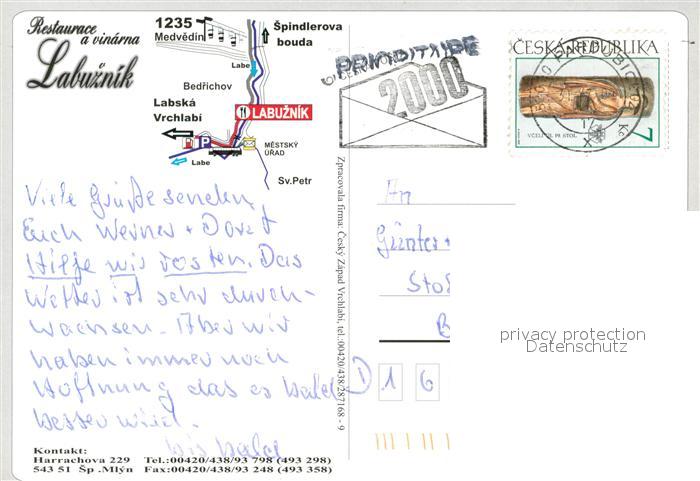 Restaurace
a vinárna
Labužník
1235
Medvědín
Špindlerova
bouda
Labe
Bedřichov
Labská
Vrchlabí
LABUŽNÍK
P
MĚSTSKÝ
ÚŘAD
Labe
Sv.Petr
Viele Grüße senden
Euch Werner + Dorat
Hilfe wir rosten. Das
Wetter ist sehr durch-
wachsen. Aber wir
haben immer noch
Hoffnung das es bald
besser wird.
bis bald
Kontakt:
Harrachova 229 Tel.:00420/438/93 798 (493 298)
543 51 Šp .Mlýn Fax:00420/438/93 248 (493 358)
Zpracovala firma: Český Západ Vrchlabí, tel.:00420/438/287168 - 9
2000
ČESKÁ REPUBLIKA
VČELÍ ÚL PŘ. STOL.
7 Kč
An
Günter +
Sto
B
D 1 6
privacy protection
Datenschutz